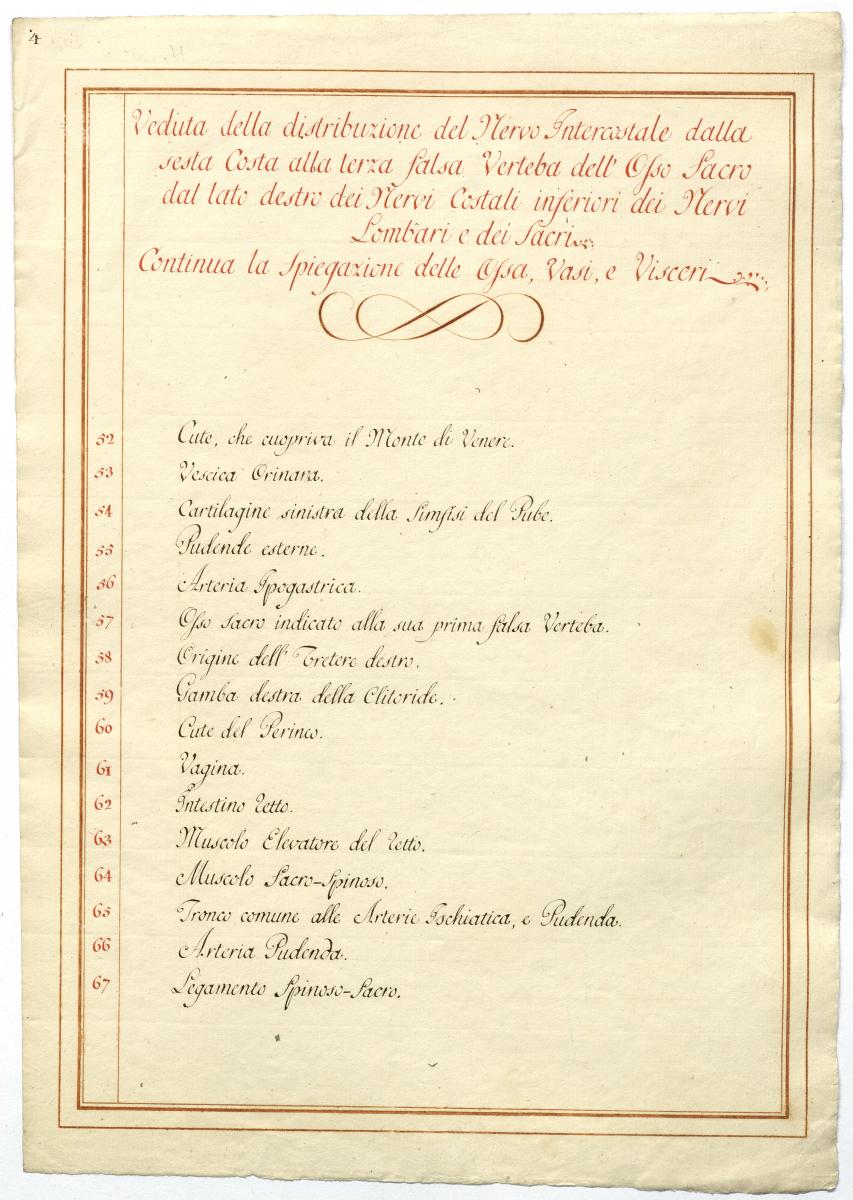 4
Veduta della distribuzione del Nervo Intercostale dalla
sesta Costa alla terza falsa Verteba dell' Osso Sacro
dal lato destro dei Nervi Costali inferiori dei Nervi
Lombari e dei Sacri
Continua la Spiegazione delle Ossa, Vasi, e Visceri
52 Cute, che cuopriva il Monte di Venere.
53 Vescica Orinara.
54 Cartilagine sinistra della Simfisi del Pube.
55 Pudende esterne.
56 Arteria Ipogastrica.
57 Osso Sacro indicato alla sua prima falsa Verteba.
58 Origine dell' Uretere destro.
59 Gamba destra della Clitoride.
60 Cute del Perineo.
61 Vagina.
62 Intestino Retto.
63 Muscolo Elevatore del Retto.
64 Muscolo Sacro-Spinoso.
65 Tronco comune alle Arterie Ischiatica, e Pudenda.
66 Arteria Pudenda.
67 Legamento Spinoso-Sacro.